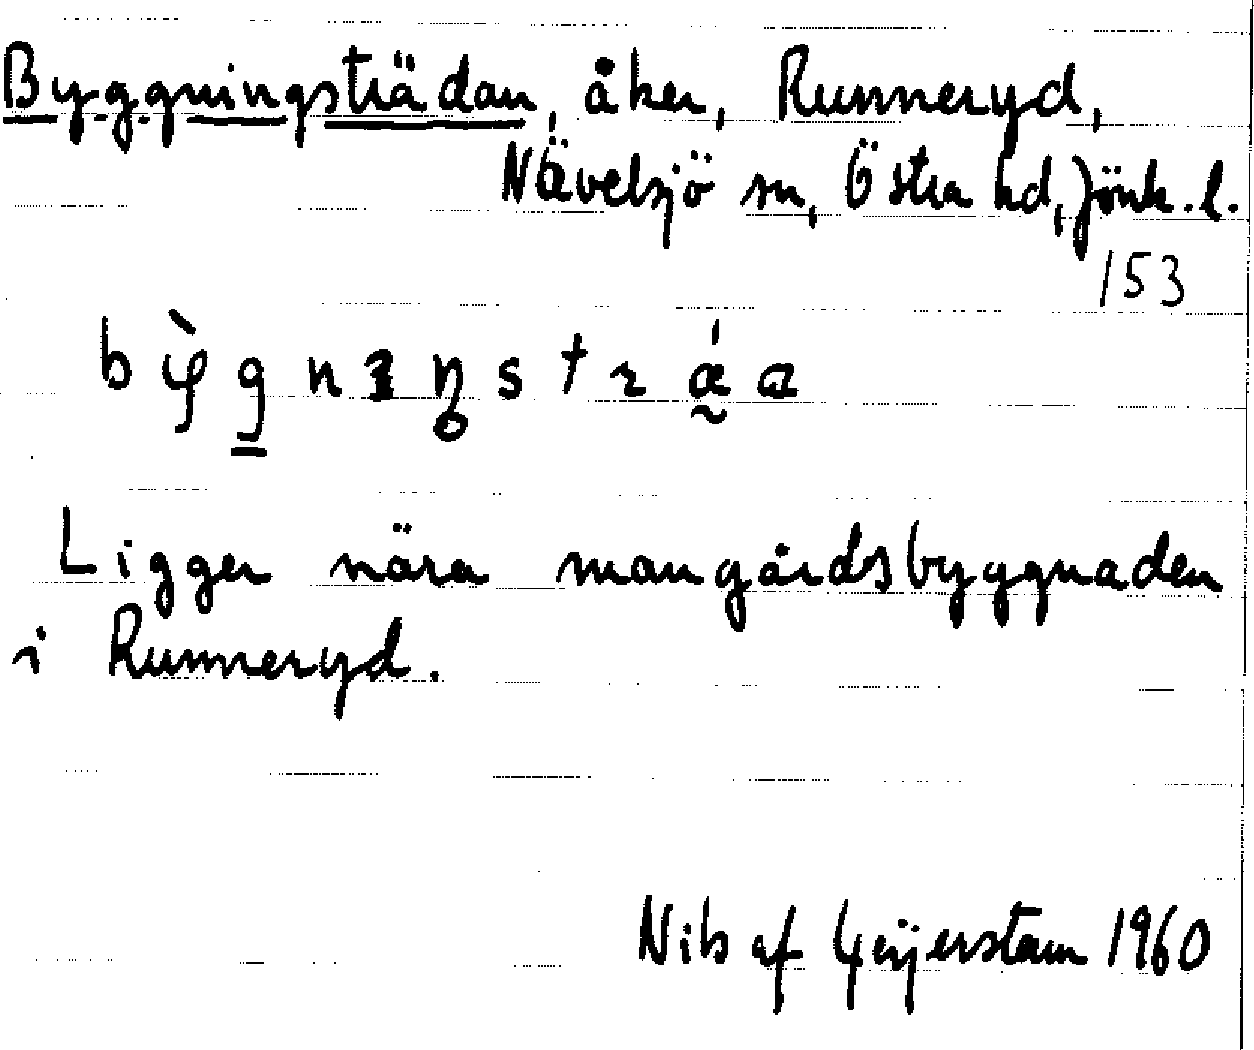 Byggningsträdan, åker, Runneryd,
Nävelsjö sn, Östra hd, Jönk. l.
153
Ligger nära mangårdsbyggnaden
i Runneryd.
Nils af Geijerstam 1960